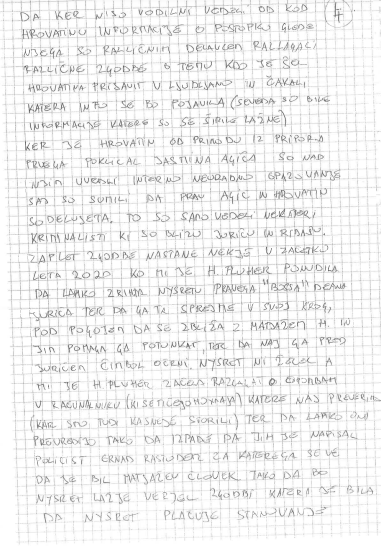 4
DA KER NISO VODILNI VEDELI OD KOD
HROVATINU INFORMACIJE O POSTOPKU GLEDE
NJEGA SO RAZLIČNIM DELAVCEM RAZLAGALI
RAZLIČNE ZGODBE O TEMU KDO JE ŠEL
HROVATINA PRISAVIT V LJUBLJANO IN ČAKALI
KATERA INFO SE BO POJAVILA (SEVEDA SO BILE
INFORMACIJE KATERE SO SE ŠIRILE LAŽNE)
KER JE HROVATIN OD PRIHODU IZ PRIPORA
PRVEGA POKLICAL JASMINA AGIČA SO NAD
NJIM UVEDLI INTERNO NEURADNO OPAZOVANJE
SAJ SO SUMILI DA PRAV AGIČ IN HROVATIN
SODELUJETA. TO SO SAMO VEDELI NEKATERI
KRIMINALISTI KI SO BLIZU JURIČU IN RIBAŠU.
ZAPLET ZGODBE NASTANE NEKJE V ZAČETKU
LETA 2020 KO MI JE H. PLUHER PONUDILA
DA LAHKO ZRIHTA NYSRETU PRAVEGA "BOSSA" DEANA
JURIČA TER DA GA TA SPREJME V SVOJ KROG,
POD POGOJEM DA SE ZBLIŽA Z MATJAŽEM H. IN
JIM POMAGA GA POTUNKAT, TER DA NAJ GA PRED
JURIČEM ČIMBOL OČRNI. NYSRET NI ŽELEL A
MI JE H PLUHER ZAČELA RAZLAGAT O OVADBAH
V RAČUNALNIKU (KI SE TIČEJO HOXHAJA) KATERE NAJ PREVERIM
(KAR SMO TUDI KASNEJE STORILI) TER DA LAHKO ONI
PREUREDIJO TAKO DA IZPADE DA JIH JE NAPISAL
POLICIST ERNAD RASTODER ZA KATEREGA SE VE
DA JE BIL MATJAŽEV ČLOVEK TAKO DA BO
NYSRET LAŽJE VERJEL ZGODBI KATERA JE BILA
DA NYSRET PLAČUJE STANOVANJE